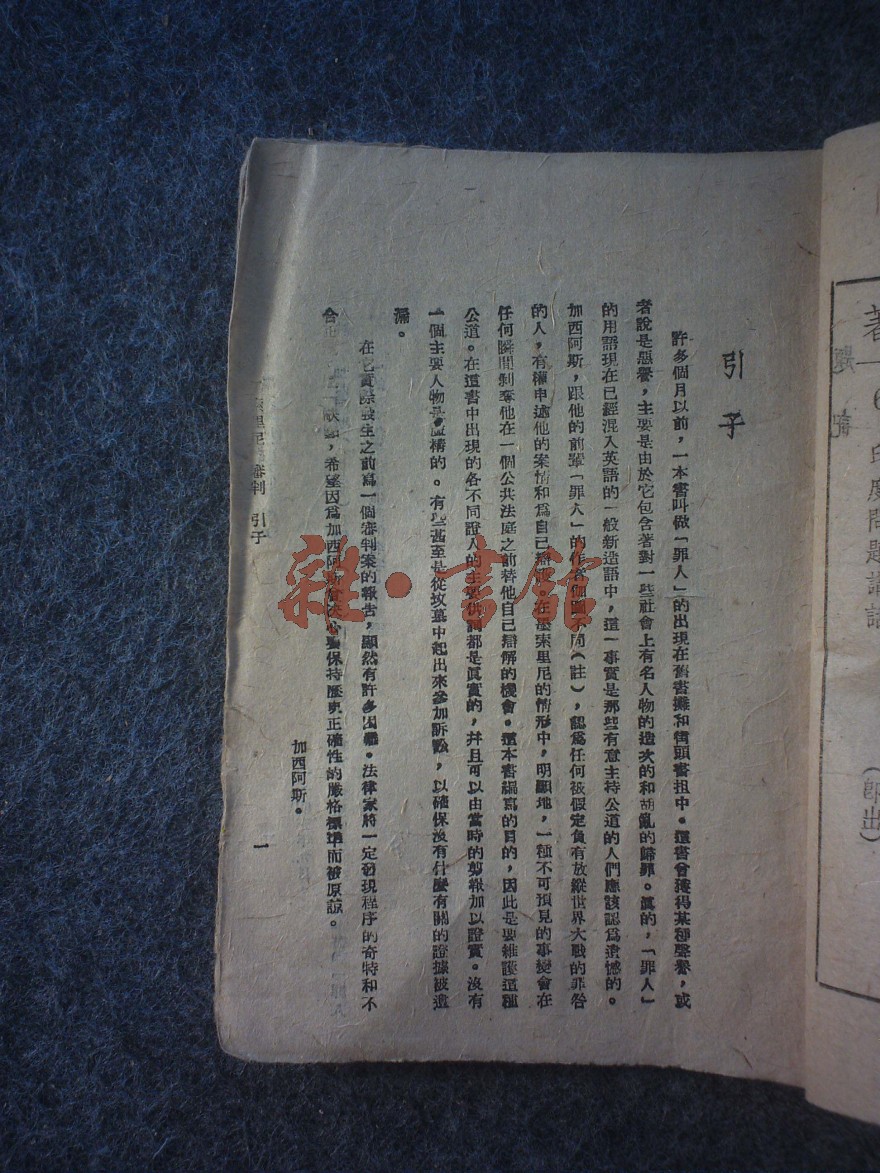 引子
許多個月以前，一本書叫做「罪人」的出現在舊書攤和街頭書担中。這書曾獲得某種聲譽，或
者說是惡譽，主要是由於它包含著對一些社會上有名人物的造次的和胡亂的歸罪。眞的，「罪人」
的用語現在已經混入英語的一般新造語中，這一事實是那些有意主持公道的人們應該認爲遺憾的。
加西阿斯，跟他的前輩「罪人」的作者 不同（註），認爲任何被假定負有放縱世界大戰的罪咎
的人，有權申述他的案情和爲自己辯護。在墨索里尼的情形中，明顯地，一種不可預見的事變會在
任何瞬間剝奪他在一個公共法庭之前替他自己辯解的機會。這本書編寫的目的，因此是要維護這種
公道。在這書中出現的各不同證人的主要供詞都是眞實的，并且可以由當時的剪報加以證實。沒有
一個主要人物是虛構的。有些甚至是從坟墓中起出來參加訴訟，以確保沒有什麼有關的證據被遺
漏。
在它實際發生之前寫一個審判案的報告，顯然有許多困難。法律家將一定發現程序的奇特和不
合 缺點，希望因爲加西阿斯 要保持歷史正確性的嚴格標準而被原諒。
加西阿斯。
審判 引子
一
著
印度問題講話
（卽出）